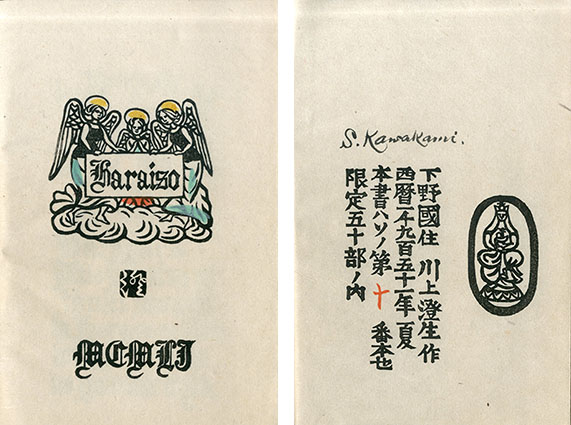 Haraiso
澄
MCMLI
S. Kawakami.
下野國住 川上澄生 作
西暦一千九百五十一年夏
本書ハソノ第十番本也
限定五十部ノ内